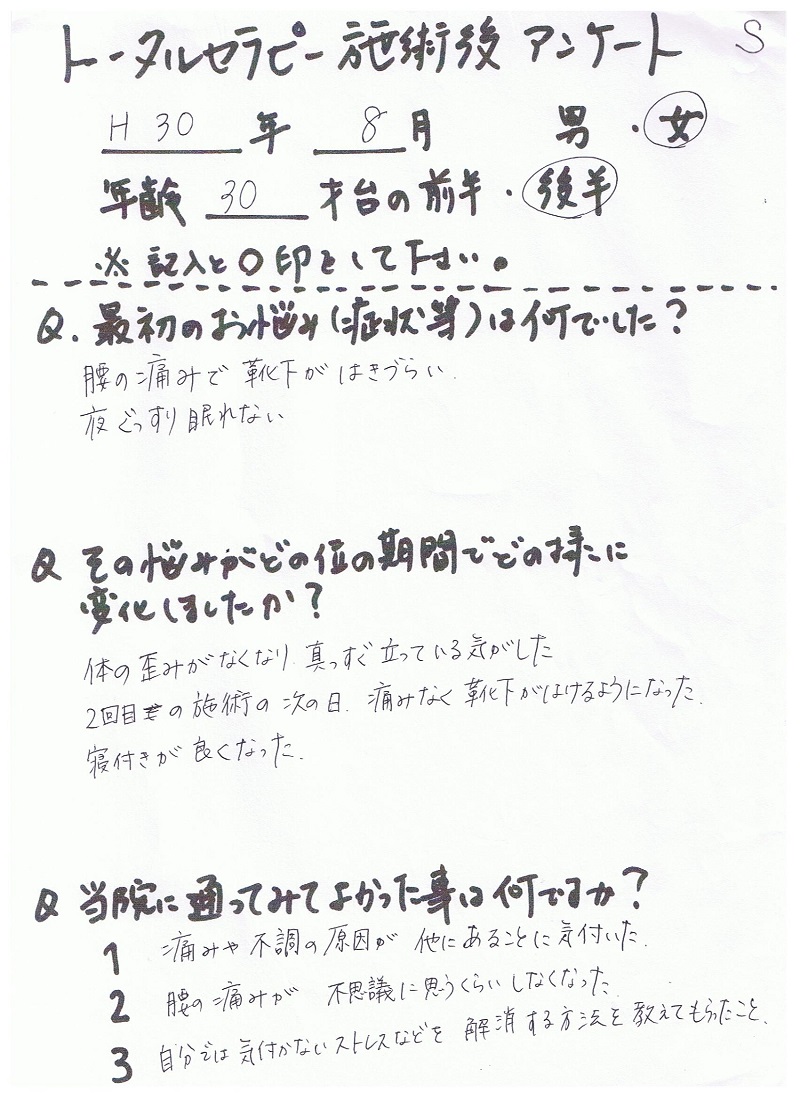 トータルセラピー施術後 アンケート S
H 30 年 8 月 男 ・ 女
年齢 30 才台の前半・後半
※ 記入と○印をして下さい。
Q. 最初のお悩み(症状等)は何でした?
腰の痛みで 靴下が はきづらい.
夜ぐっすり眠れない
Q その悩みがどの位の期間でどの様に
変化しましたか?
体の歪みがなくなり 真っすぐ立っている気がした
2回目の施術の次の日. 痛みなく靴下がはけるようになった.
寝付きが良くなった.
Q 当院に通ってみてよかった事は何ですか?
1 痛みや不調の原因が 他にあることに気付いた.
2 腰の痛みが 不思議に思うくらいしなくなった
3 自分では気付かないストレスなどを 解消する方法を教えてもらったこと.